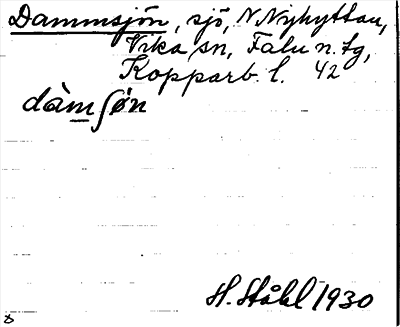 Dammsjön, sjö, N. Nyhyttan,
Vika sn, Falu n. tg,
Kopparb. l. 42
dàmʃøn
H. Ståhl 1930